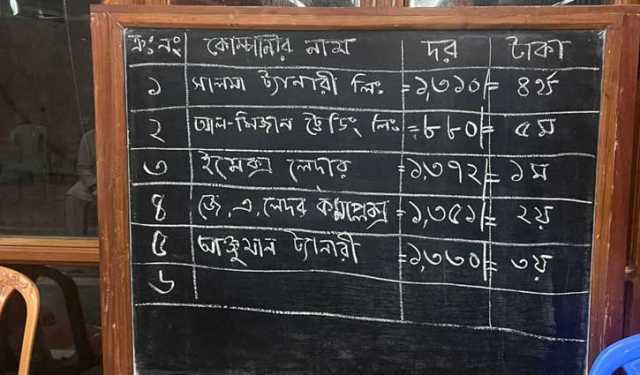 ক্রঃনং কোম্পানির নাম দর টাকা
১ সালমা ট্যানারী লিঃ =১,৩১০/= ৪র্থ
২ আল-মিজান ট্রেডিং লিঃ =৮৮০/= ৫ম
৩ ইমেক্স লেদার =১,৩৭২/= ১ম
৪ জে, এ, লেদার কমপ্লেক্স =১,৩৫১/= ২য়
৫ আঞ্জুমান ট্যানারী =১,৩৩০/= ৩য়
৬